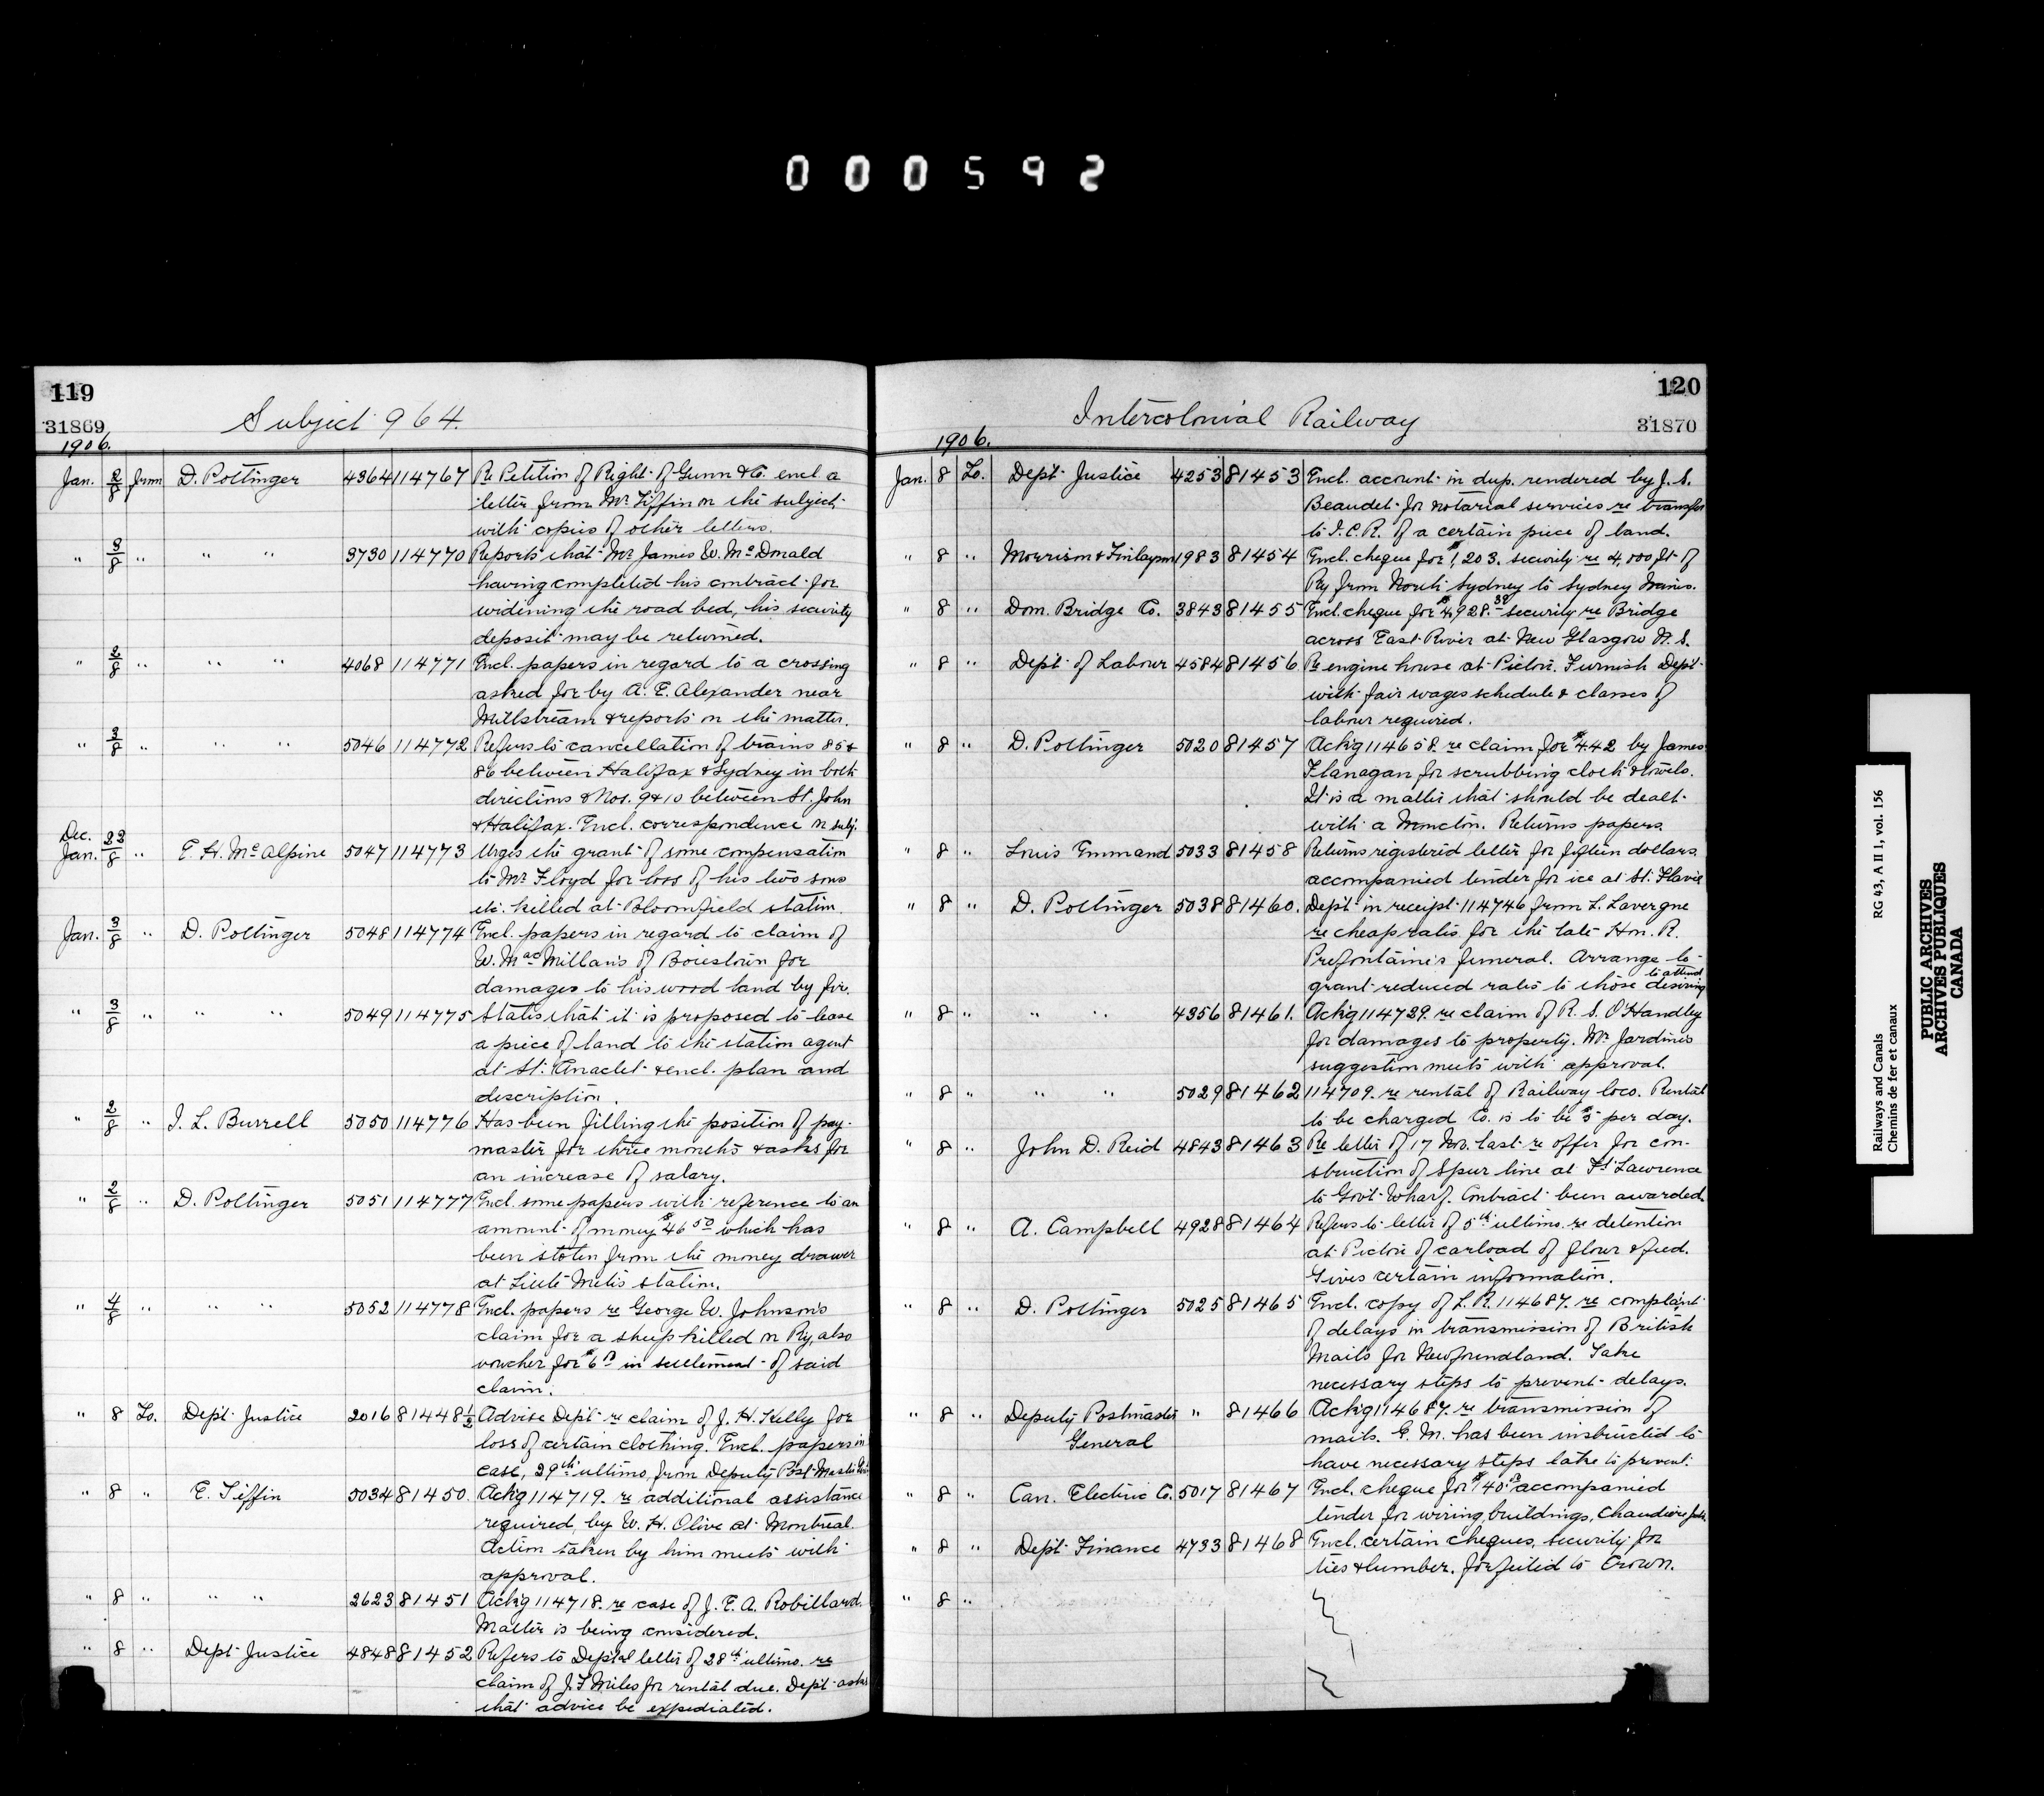 000592
119
31869
Subject 964.
1906.
Jan. 2/8 from D. Pottinger 4364 114767 Re Petition of Right of Gunn & Co. encl. a
letter from Mr. Tiffin on the subject
with copies of other letters.
" 3/8 " " " 3730 114770 Reports that Mr. James W. McDonald
having completed his contract for
widening the road bed, his security
deposit may be returned.
" 2/8 " " " 4068 114771 Encl. papers in regard to a crossing
asked for by A. E. Alexander near
Millstream & reports on the matter.
" 3/8 " " " 5046 114772 Refers to cancellation of trains 85 &
86 between Halifax & Sydney in both
directions & Nos. 9 & 10 between St. John
& Halifax. Encl. correspondence on subj.
Dec. 23
Jan. 8 " E. H. McAlpine 5047 114773 Urges the grant of some compensation
to Mr. Floyd for loss of his two sons
etc. killed at Bloomfield station.
Jan. 3/8 " D. Pottinger 5048 114774 Encl. papers in regard to claim of
W. MacMillan's of Boiestown for
damages to his wood land by fire.
" 3/8 " " " 5049 114775 States that it is proposed to lease
a piece of land to the station agent
at St. Anaclet & encl. plan and
description.
" 2/8 " J. L. Burrell 5050 114776 Has been filling the position of pay-
master for three months & asks for
an increase of salary.
" 2/8 " D. Pottinger 5051 114777 Encl. some papers with reference to an
amount of money $46.50 which has
been stolen from the money drawer
at Little Metis station.
" 4/8 " " " 5052 114778 Encl. papers re George W. Johnson's
claim for a sheep killed on Ry, also
voucher for $6 in settlement of said
claim.
" 8 To. Dept. Justice 2016 81448½ Advise Dept. re claim of J. H. Kelly for
loss of certain clothing. Encl. papers in
case, 29th ultimo, from Deputy Post Master
" 8 " E. Tiffin 5034 81450. Ackg 114719. re additional assistance
required by W. H. Olive at Montreal.
Action taken by him meets with
approval.
" 8 " " " 2623 81451 Ackg 114718. re case of J. E. A. Robillard.
Matter is being considered.
" 8 " Dept. Justice 4848 81452 Refers to Dept'al letter of 28th ultimo. re
claim of J. F. Miles for rental due. Dept. asks
that advice be expediated.
120
31870
Intercolonial Railway
1906.
Jan. 8 To. Dept. Justice 4253 81453 Encl. account in dup. rendered by J. S.
Beaudet for notarial services re transfer
to I.C.R. of a certain piece of land.
" 8 " Morrison & Finlayson 1983 81454 Encl. cheque for $1,203. security re 4,000 ft of
Ry from North Sydney to Sydney Mines.
" 8 " Dom. Bridge Co. 3843 81455 Encl. cheque for $4,928.38 security re Bridge
across East River at New Glasgow N. S.
" 8 " Dept. of Labour 4584 81456. Re engine house at Pictou. Furnish Dept.
with fair wages schedule & classes of
labour required.
" 8 " D. Pottinger 5020 81457 Ackg 114658. re claim for $4.42 by James
Flanagan for scrubbing cloth & towels.
It is a matter that should be dealt
with a Moncton. Returns papers.
" 8 " Louis Emmand 5033 81458 Returns registered letter for fifteen dollars.
accompanied tender for ice at St. Flavie
" 8 " D. Pottinger 5038 81460. Dept. in receipt 114746 from L. Lavergne
re cheap rates for the late Hon. R.
Prefontaine's funeral. Arrange to
grant reduced rates to those desiring to attend
" 8 " " " 4356 81461. Ackg 114729. re claim of R. S. O'Handley
for damages to property. Mr. Jardine's
suggestion meets with approval.
" 8 " " " 5029 81462 114709. re rental of Railway loco. Rental
to be charged Co. is to be $5 per day.
" 8 " John D. Reid 4843 81463 Re letter of 17 Nov. last re offer for con-
struction of spur line at St Lawrence
to Govt. Wharf. Contract been awarded.
" 8 " A. Campbell 4928 81464 Refers to letter of 5th ultimo. re detention
at Pictou of carload of flour & feed.
Gives certain information.
" 8 " D. Pottinger 5025 81465 Encl. copy of L.R. 114687. re complaint
of delays in transmission of British
Mails for Newfoundland. Take
necessary steps to prevent delays.
" 8 " Deputy Postmaster " 81466 Ackg 114687. re transmission of
General mails. G. M. has been instructed to
have necessary steps take to prevent.
" 8 " Can. Electric Co. 5017 81467 Encl. cheque for $140. accompanied
tender for wiring, buildings, Chaudiere
" 8 " Dept. Finance 4733 81468 Encl. certain cheques, security for
ties & lumber, forfeited to Crown.
" 8 "
Railways and Canals RG 43, A II 1, vol. 156
Chemins de fer et canaux
PUBLIC ARCHIVES
ARCHIVES PUBLIQUES
CANADA